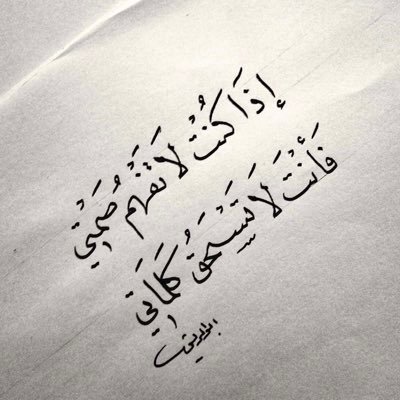 إِذَا كُنْتَ لَا تَفْهَم صَمْتِي
فَأَنْتَ لَا تَسْتَحِقُّ كَلِمَاتِي